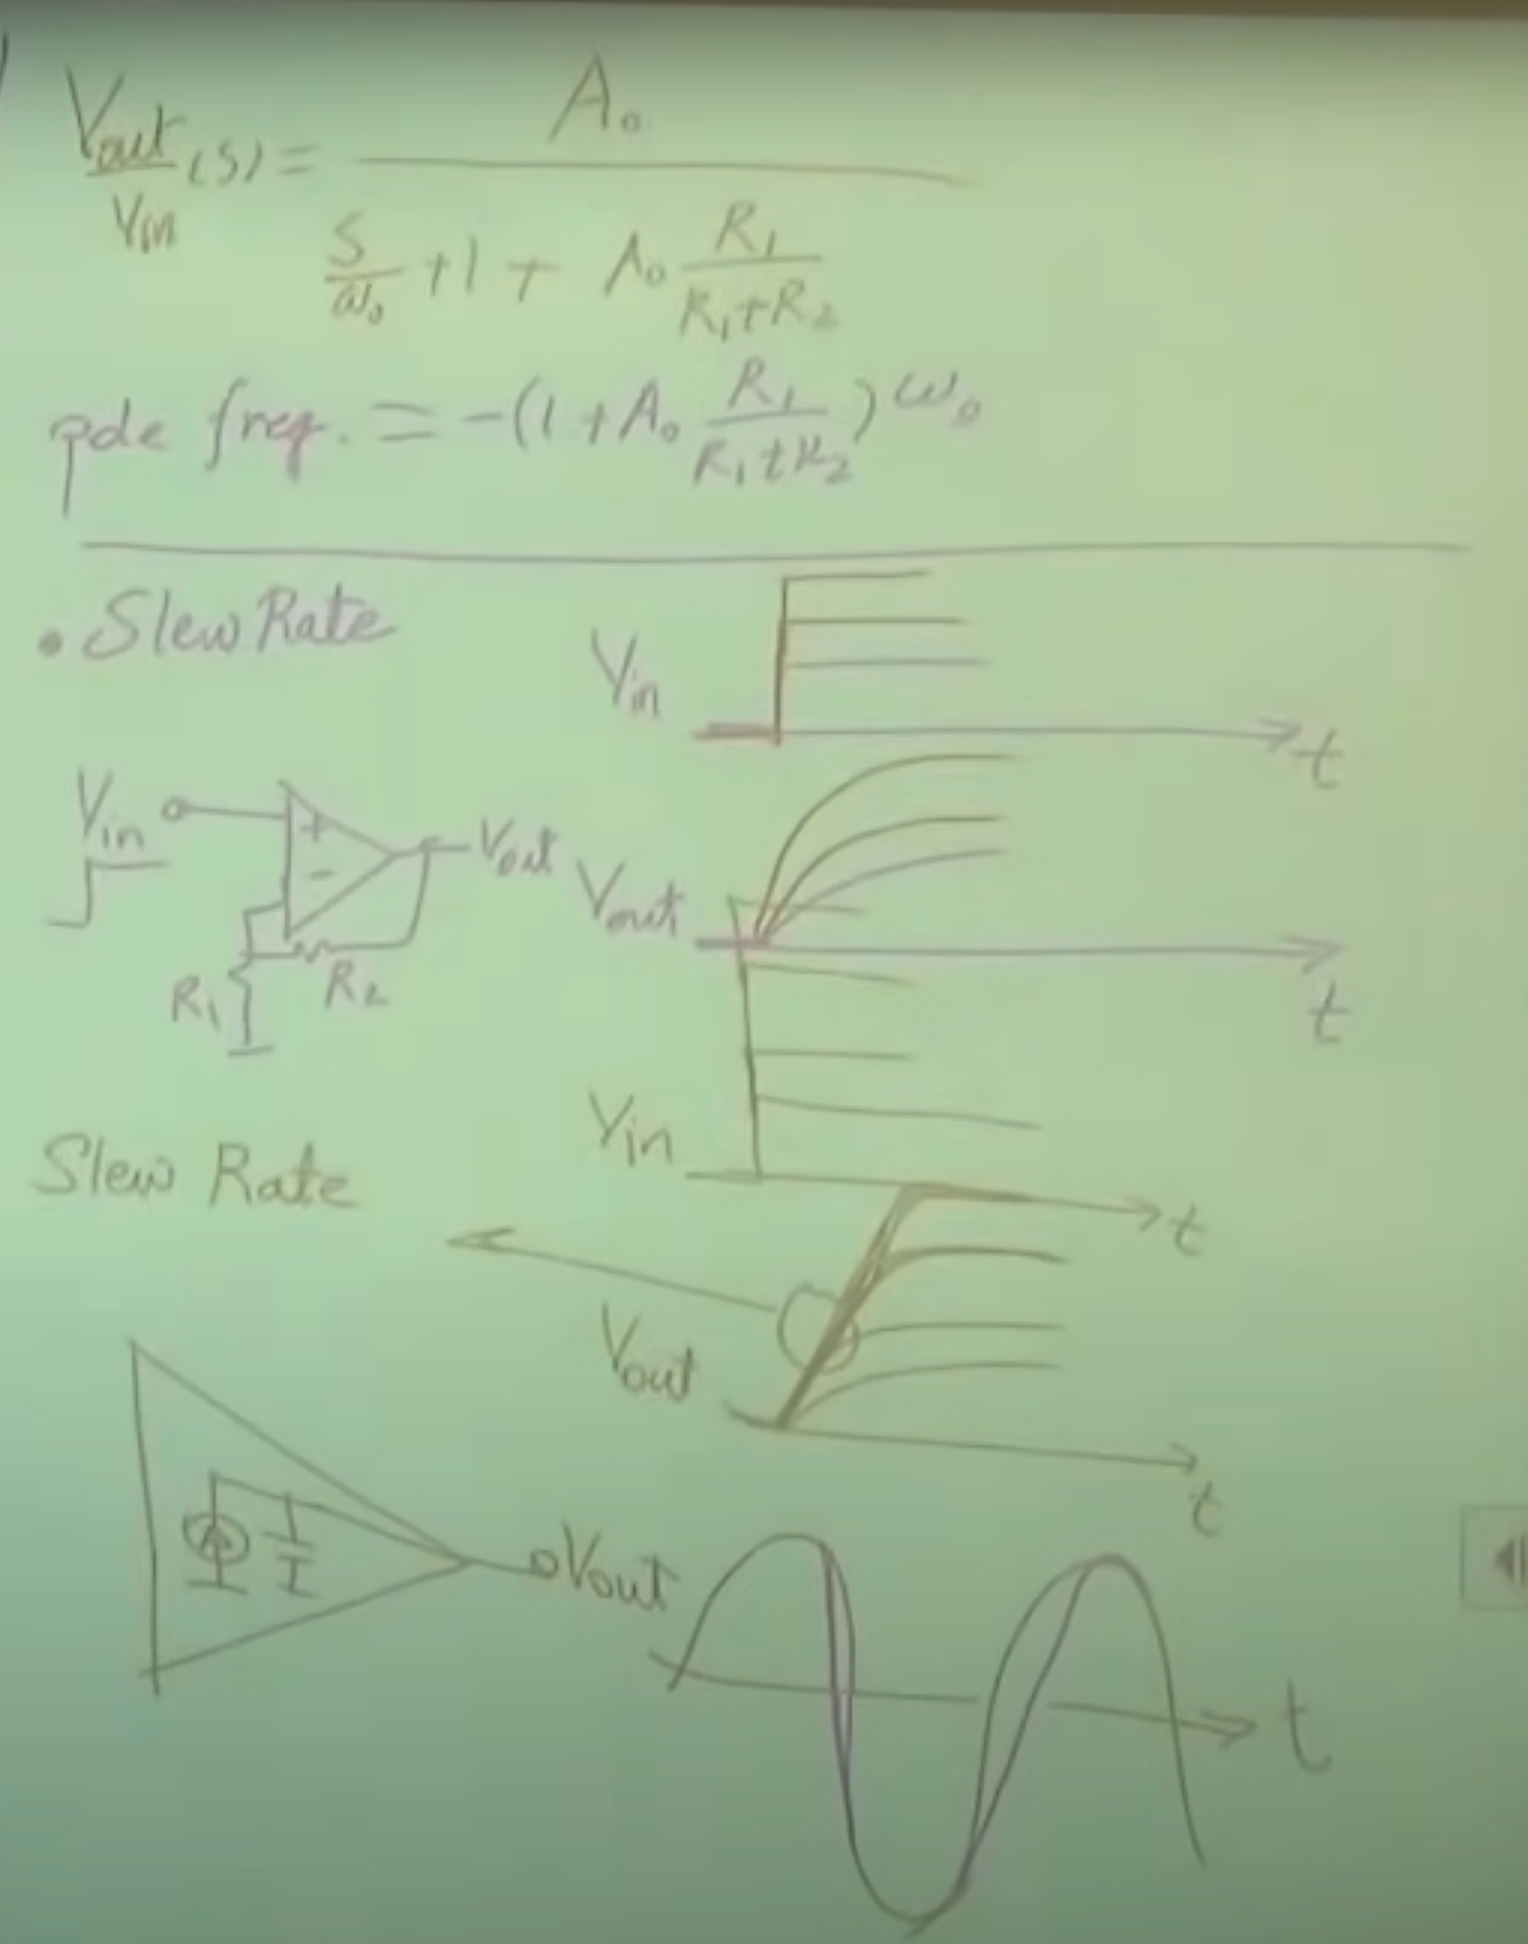 Vout/Vin (s) = A₀ / (s/ω₀ + 1 + A₀ R₁/(R₁+R₂))
pole freq. = -(1 + A₀ R₁/(R₁+R₂)) ω₀
• Slew Rate
Vin
t
Vin
+
-
Vout
R₁
R₂
Vout
t
Slew Rate
Vin
t
Vout
t
Vout
t